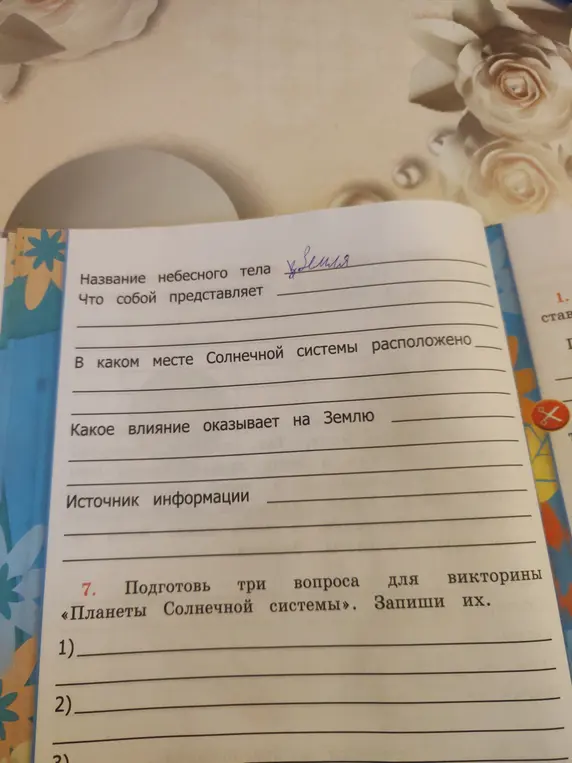 Название небесного тела Земля
Что собой представляет
В каком месте Солнечной системы расположено
Какое влияние оказывает на Землю
Источник информации
7. Подготовь три вопроса для викторины
«Планеты Солнечной системы». Запиши их.
1)
2)
3)
1.
став